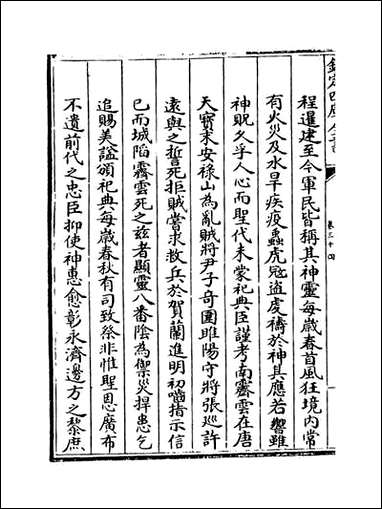 欽定四庫全書
卷三十四
程暹建至今軍民皆稱其神靈每歲春首風狂境內常
有火災及水旱疾疫蟲虎冦盜虔禱於神其應若響雖
神貺久孚人心而聖代未蒙祀典臣謹考南霽雲在唐
天寶末安祿山為亂賊將尹子奇圍睢陽守將張巡許
逺與之誓死拒賊嘗求救兵於賀蘭進明初嚙指示信
已而城陷霽雲死之兹者顯靈八番陰為禦災捍患乞
追賜美諡頒祀典每歲春秋有司致祭非惟聖恩廣布
不遺前代之忠臣抑使神惠愈彰永濟邊方之黎庶